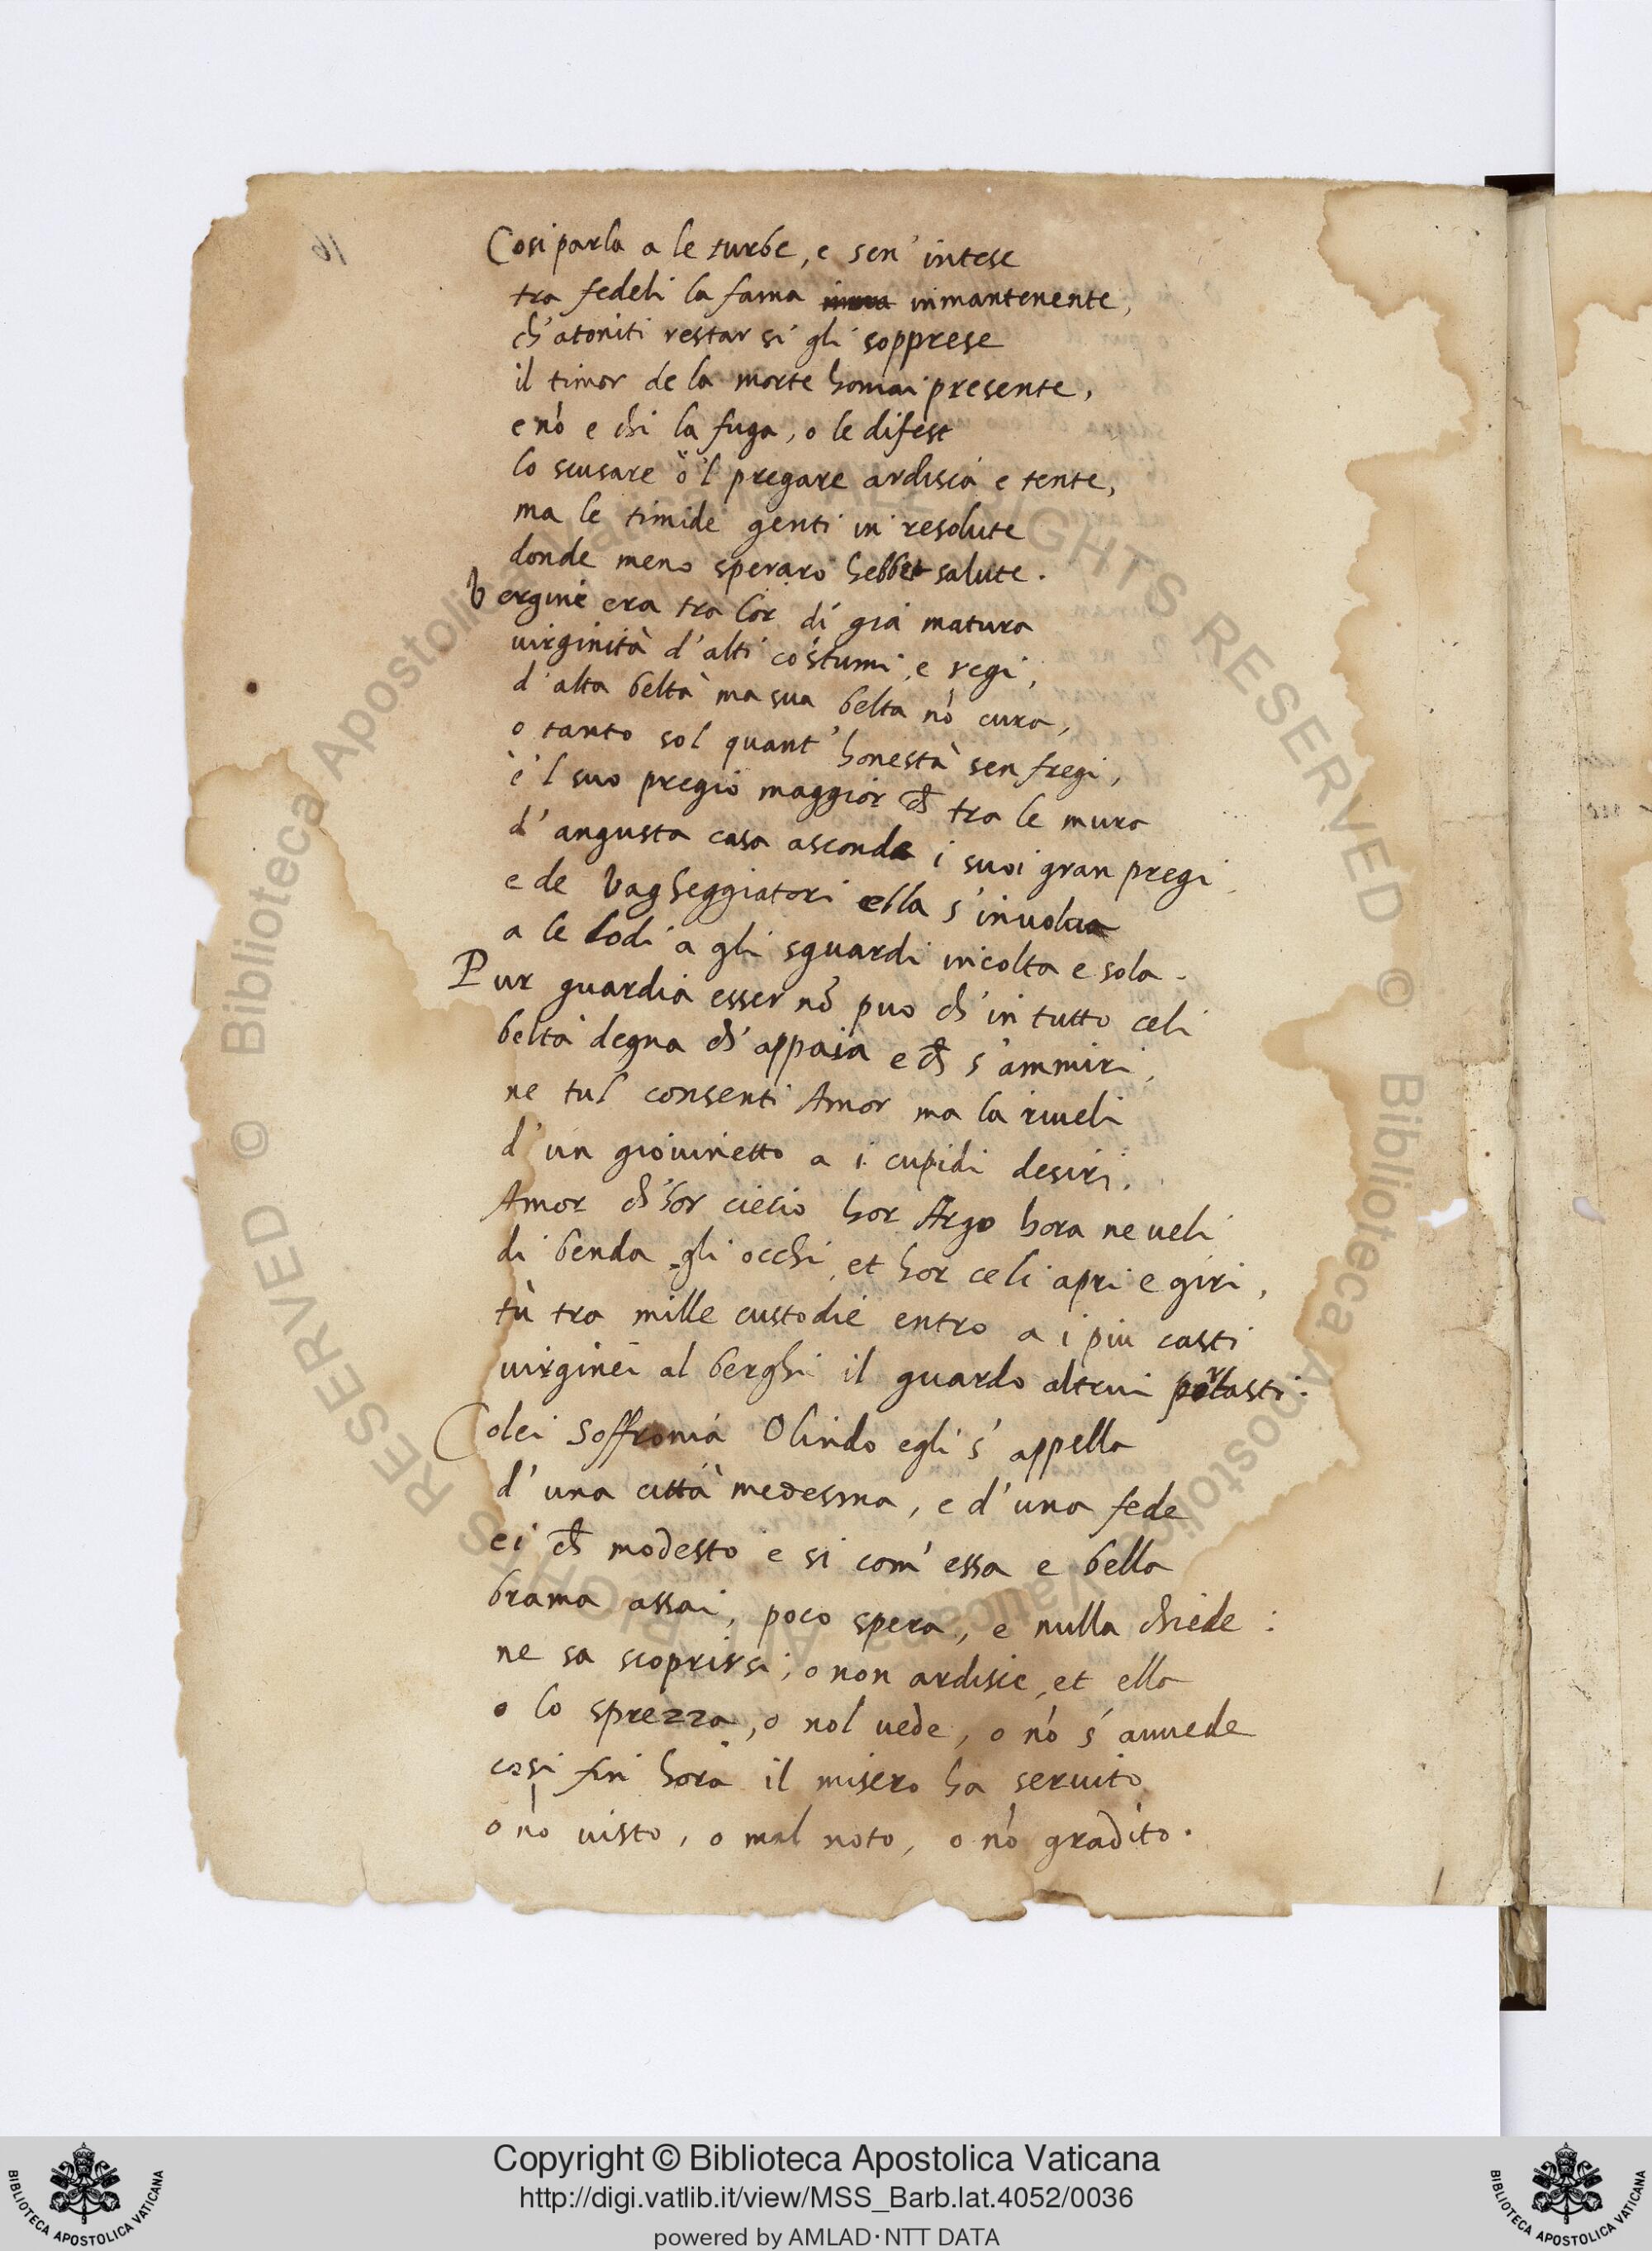 Cosi parla a le turbe, e sen' intese
tra fedeli la fama inmantenente,
ch' atoniti restar si gli sopprese
il timor de la morte homai presente,
e nó e chi la fuga, o le difese
lo scusare o 'l pregare ardisca e tente,
ma le timide genti in resolute
donde meno speraro hebber salute.
Vergine era tra lor di già matura
virginità d'alti costumi, e regi,
d'alta beltà ma sua belta nó cura,
o tanto sol quant' honestà sen fregi,
è 'l suo pregio maggior ch tra le mura
d'angusta casa asconde i suoi gran pregi
e de Vagheggiatori ella s'invola
a le lodi a gli sguardi incolta e sola.
Pur guardia esser nó puo ch' in tutto celi
beltà degna ch' appaia e ch s'ammiri,
ne tul consenti Amor ma la riveli
d'un giovinetto a i cupidi desiri.
Amor ch' hor cieco hor Argo hora ne veli
di benda gli occhi, et hor celi apri e giri,
tù tra mille custodie entro a i piu casti
virginei alberghi il guardo altrui portasti.
Colei Soffronia Olindo egli s'appella
d'una città medesma, e d'una fede
ei ch modesto e si com' essa e bella
brama assai, poco spera, e nulla chiede:
ne sa scoprirsi, o non ardisce, et ella
o lo sprezza, o nol vede, o nó s'avvede
cosi fin hora il misero ha servito
o nó visto, o mal noto, o nó gradito.
16
Copyright © Biblioteca Apostolica Vaticana
http://digi.vatlib.it/view/MSS_Barb.lat.4052/0036
powered by AMLAD·NTT DATA
BIBLIOTECA APOSTOLICA VATICANA
BIBLIOTECA APOSTOLICA VATICANA
© Biblioteca Apostolica Vaticana ALL RIGHTS RESERVED
© Biblioteca Apostolica Vaticana ALL RIGHTS RESERVED